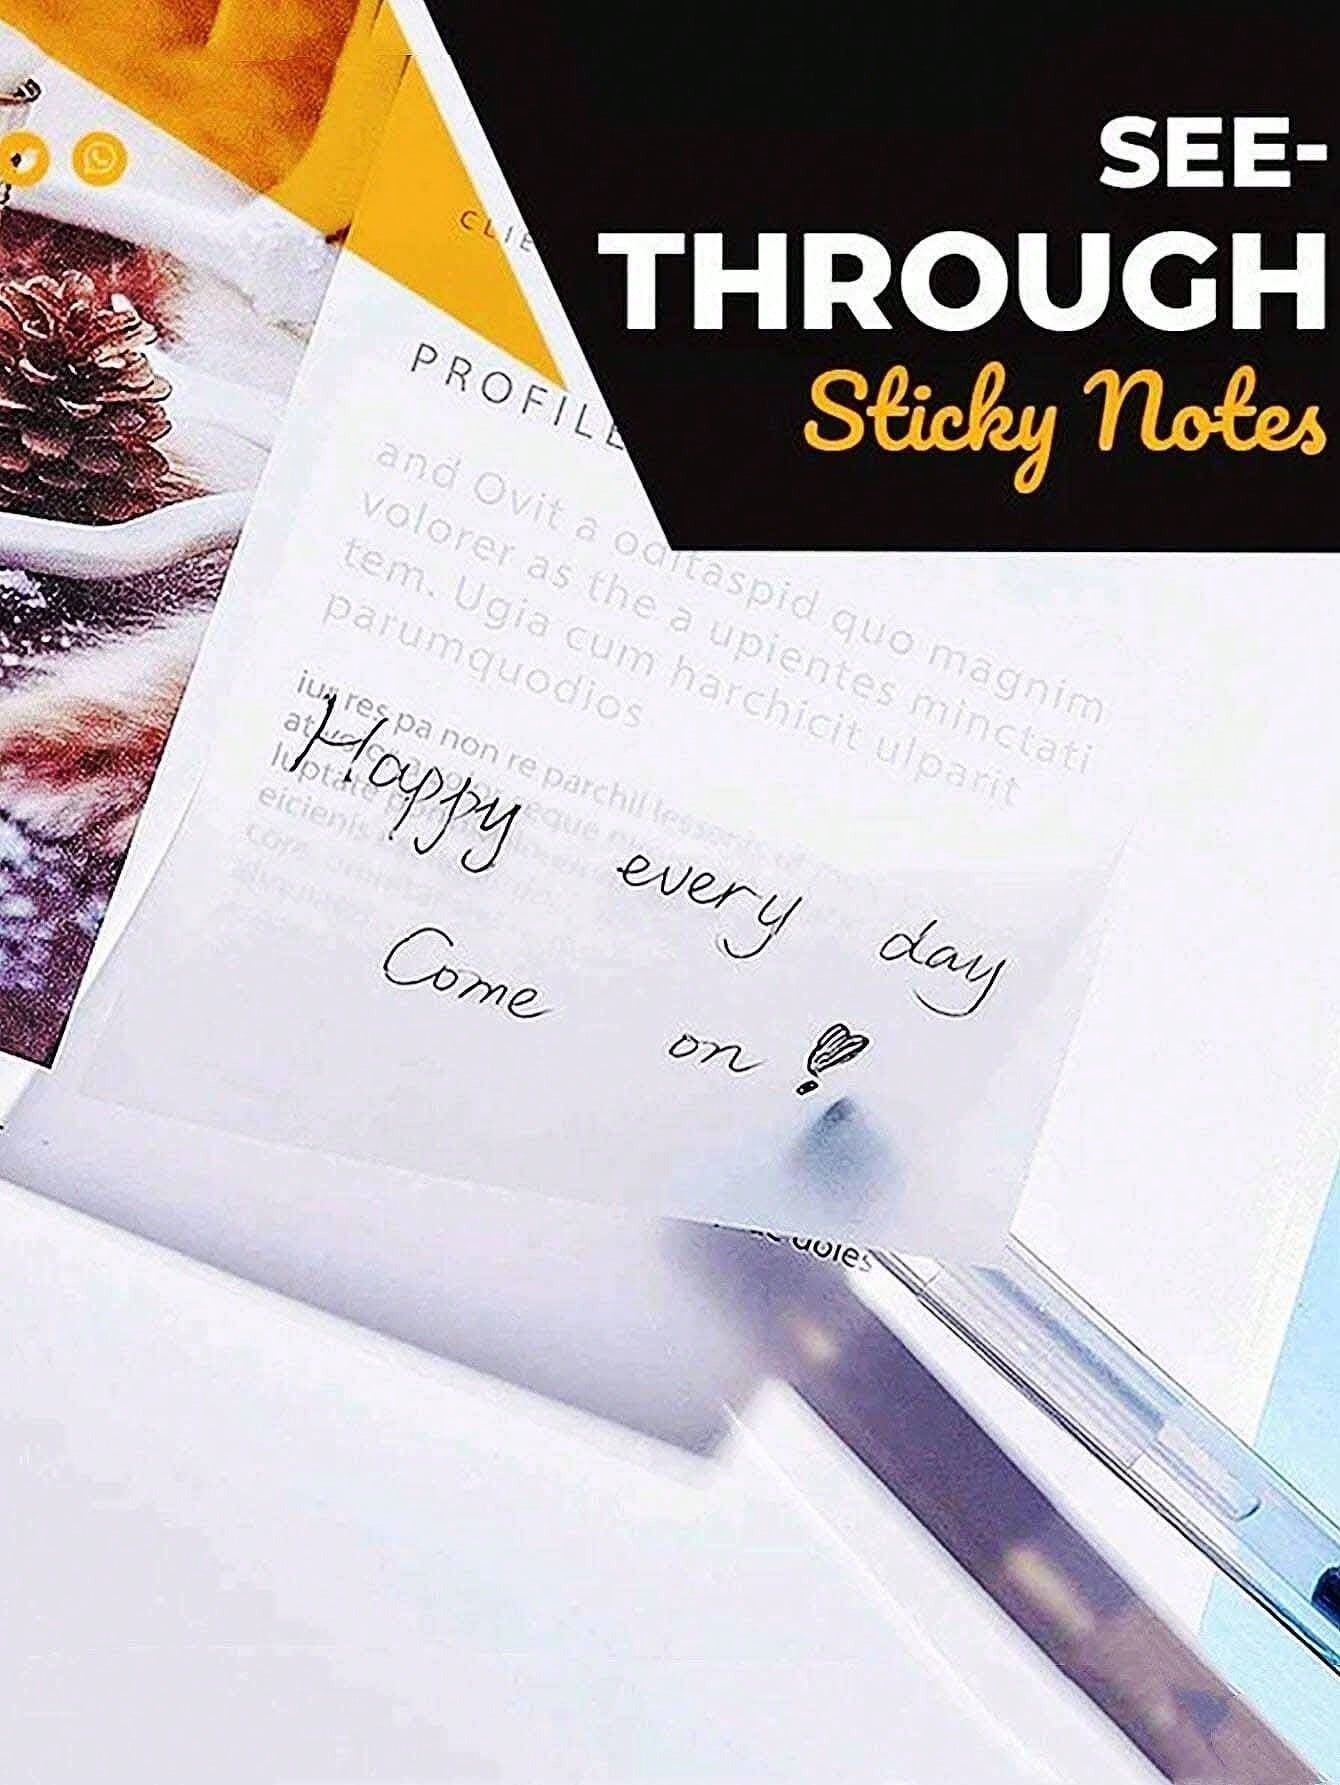 SEE-
THROUGH
Sticky Notes
PROFILE
and Ovit a oditaspid quo magnim
volorer as the a upientes minctati
tem. Ugia cum harchicit ulparit
parumquodios
ius res pa non re parchil
luptate
eicienis
Happy every day
Come on
doles